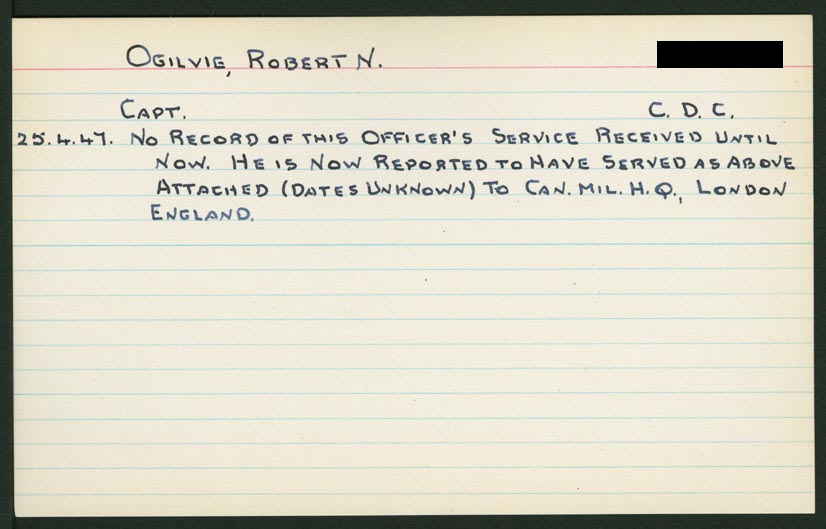 OGILVIE, ROBERT N.
CAPT. C. D. C.
25.4.47. NO RECORD OF THIS OFFICER'S SERVICE RECEIVED UNTIL
NOW. HE IS NOW REPORTED TO HAVE SERVED AS ABOVE
ATTACHED (DATES UNKNOWN) TO CAN. MIL. H. Q., LONDON
ENGLAND.